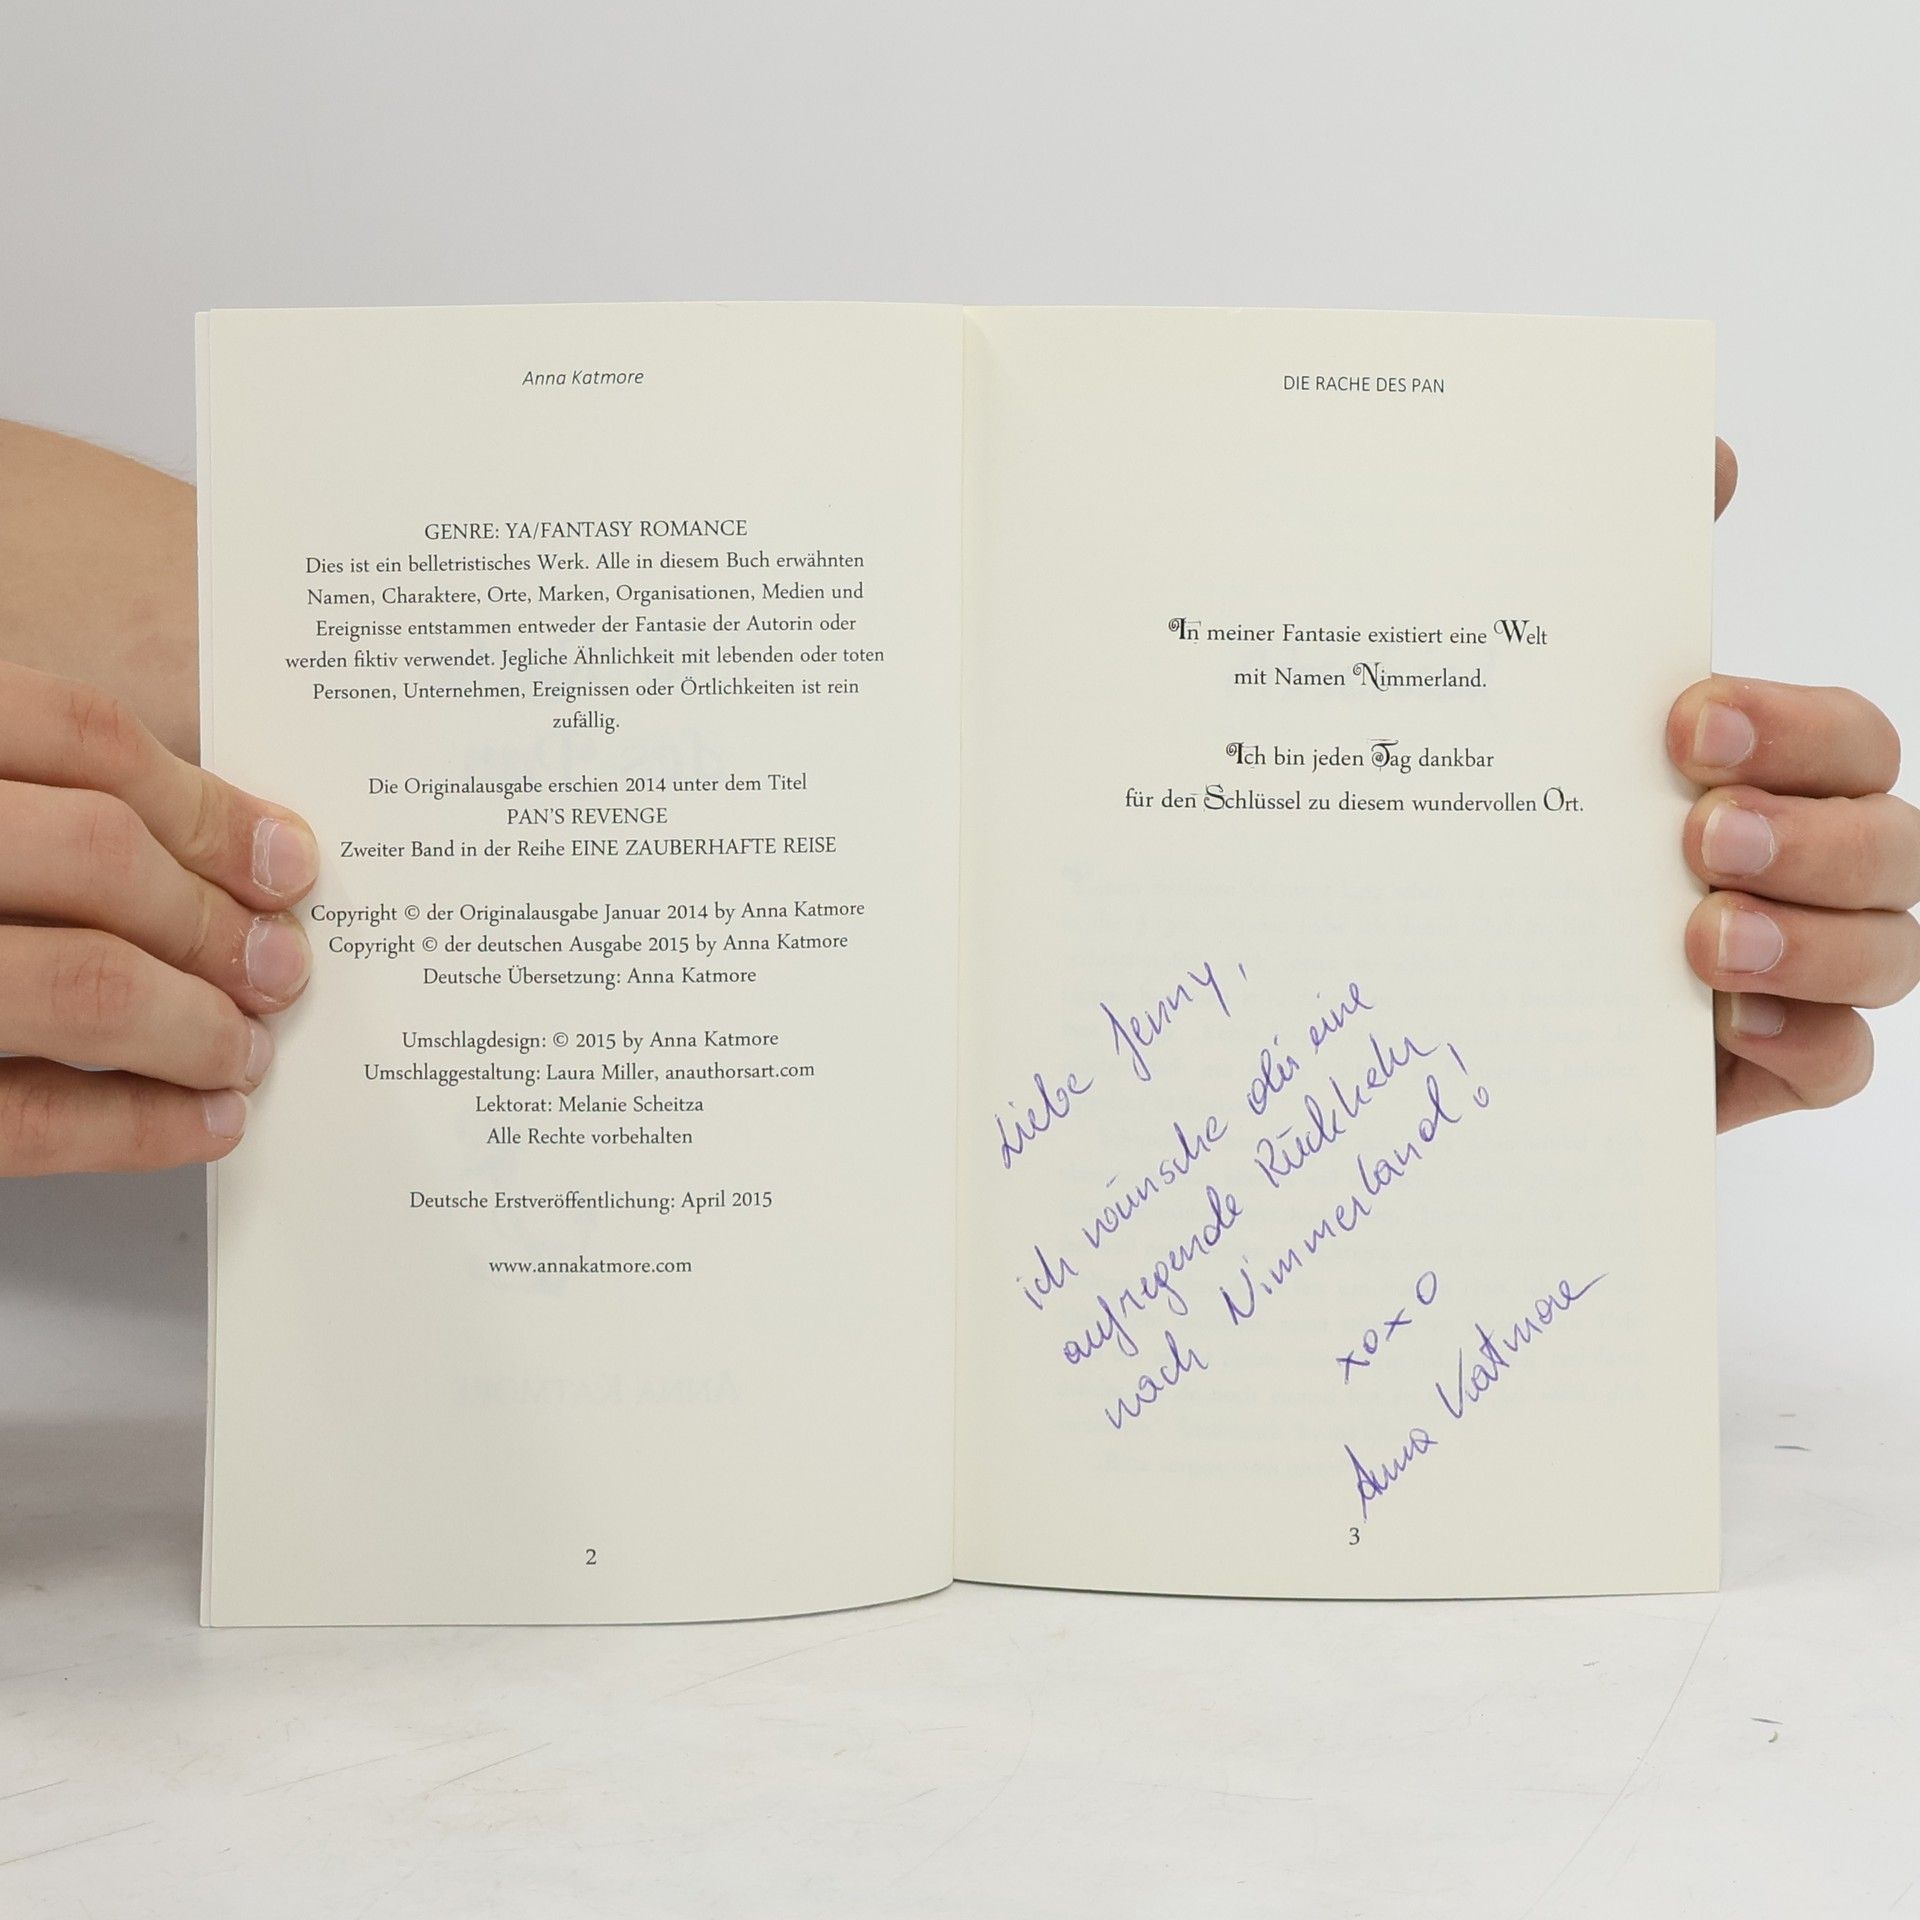 Anna Katmore
GENRE: YA/FANTASY ROMANCE
Dies ist ein belletristisches Werk. Alle in diesem Buch erwähnten
Namen, Charaktere, Orte, Marken, Organisationen, Medien und
Ereignisse entstammen entweder der Fantasie der Autorin oder
werden fiktiv verwendet. Jegliche Ähnlichkeit mit lebenden oder toten
Personen, Unternehmen, Ereignissen oder Örtlichkeiten ist rein
zufällig.
Die Originalausgabe erschien 2014 unter dem Titel
PAN'S REVENGE
Zweiter Band in der Reihe EINE ZAUBERHAFTE REISE
Copyright © der Originalausgabe Januar 2014 by Anna Katmore
Copyright © der deutschen Ausgabe 2015 by Anna Katmore
Deutsche Übersetzung: Anna Katmore
Umschlagdesign: © 2015 by Anna Katmore
Umschlaggestaltung: Laura Miller, anauthorsart.com
Lektorat: Melanie Scheitza
Alle Rechte vorbehalten
Deutsche Erstveröffentlichung: April 2015
www.annakatmore.com
2
DIE RACHE DES PAN
In meiner Fantasie existiert eine Welt
mit Namen Nimmerland.
Ich bin jeden Tag dankbar
für den Schlüssel zu diesem wundervollen Ort.
Liebe Jenny,
ich wünsche dir eine
aufregende Rückkehr
nach Nimmerland!
xoxo
Anna Katmore
3